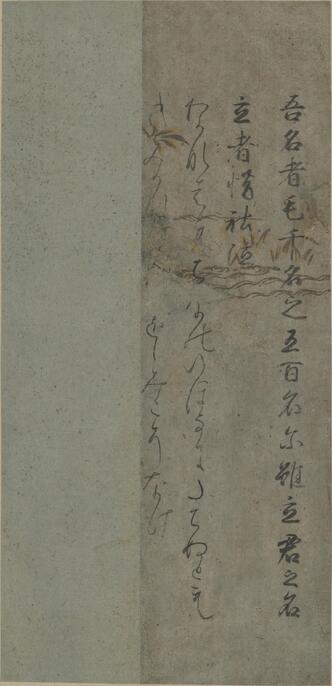 吾名者毛千名之五百名尓雖立君之名
立者惜社泣
わかなはもちなのいほなに ぬとも
きみかな をしみこそなけ